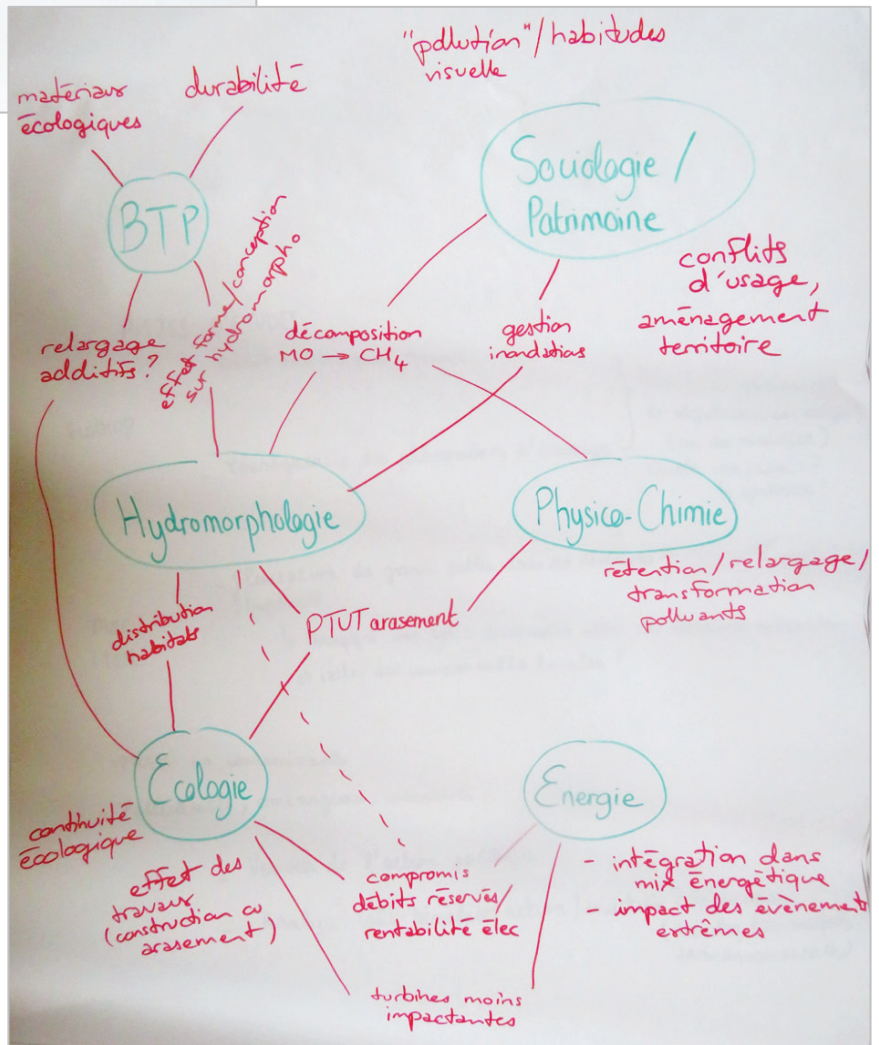 "pollution"/habitudes
visuelle
matériaux
écologiques
durabilité
Sociologie /
Patrimoine
BTP
effet forme/conception
sur hydromorpho
conflits
d'usage,
aménagement
territoire
relargage
additifs ?
décomposition
MO → CH4
gestion
inondations
Hydromorphologie
Physico-Chimie
rétention/relargage/
transformation
polluants
distribution
habitats
PTUT arasement
Ecologie
Energie
continuité
écologique
effet des
travaux
(construction ou
arasement)
compromis
débits réservés/
rentabilité élec
- intégration dans
mix énergétique
- impact des évènement
extrêmes
turbines moins
impactantes